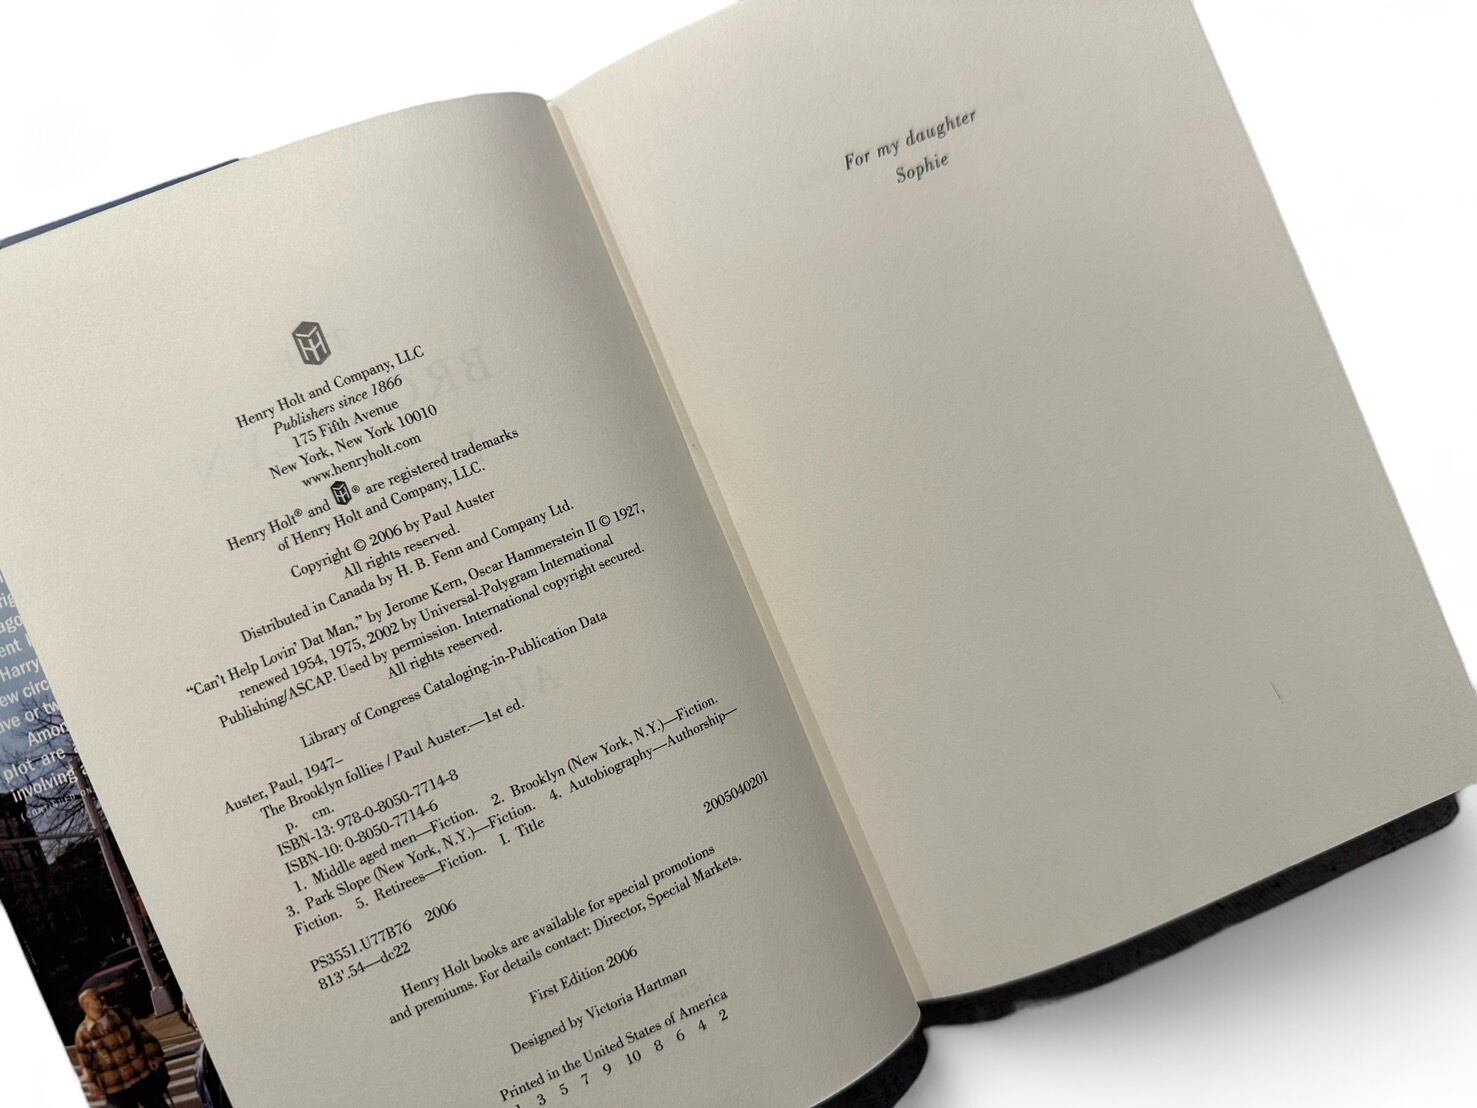 Henry Holt and Company, LLC
Publishers since 1866
175 Fifth Avenue
New York, New York 10010
www.henryholt.com
Henry Holt® and ® are registered trademarks
of Henry Holt and Company, LLC.
Copyright © 2006 by Paul Auster
All rights reserved.
Distributed in Canada by H. B. Fenn and Company Ltd.
“Can’t Help Lovin’ Dat Man,” by Jerome Kern, Oscar Hammerstein II © 1927,
renewed 1954, 1975, 2002 by Universal-Polygram International
Publishing/ASCAP. Used by permission. International copyright secured.
All rights reserved.
Library of Congress Cataloging-in-Publication Data
Auster, Paul, 1947–
The Brooklyn follies / Paul Auster.—1st ed.
p. cm.
ISBN-13: 978-0-8050-7714-8
ISBN-10: 0-8050-7714-6
1. Middle aged men—Fiction. 2. Brooklyn (New York, N.Y.)—Fiction.
3. Park Slope (New York, N.Y.)—Fiction. 4. Autobiography—Authorship—
Fiction. 5. Retirees—Fiction. I. Title
PS3551.U77B76 2006
813'.54—dc22
2005040201
Henry Holt books are available for special promotions
and premiums. For details contact: Director, Special Markets.
First Edition 2006
Designed by Victoria Hartman
Printed in the United States of America
1 3 5 7 9 10 8 6 4 2
For my daughter
Sophie
ent
Harry
ew circ
ive or tw
Amon
plot are
involving